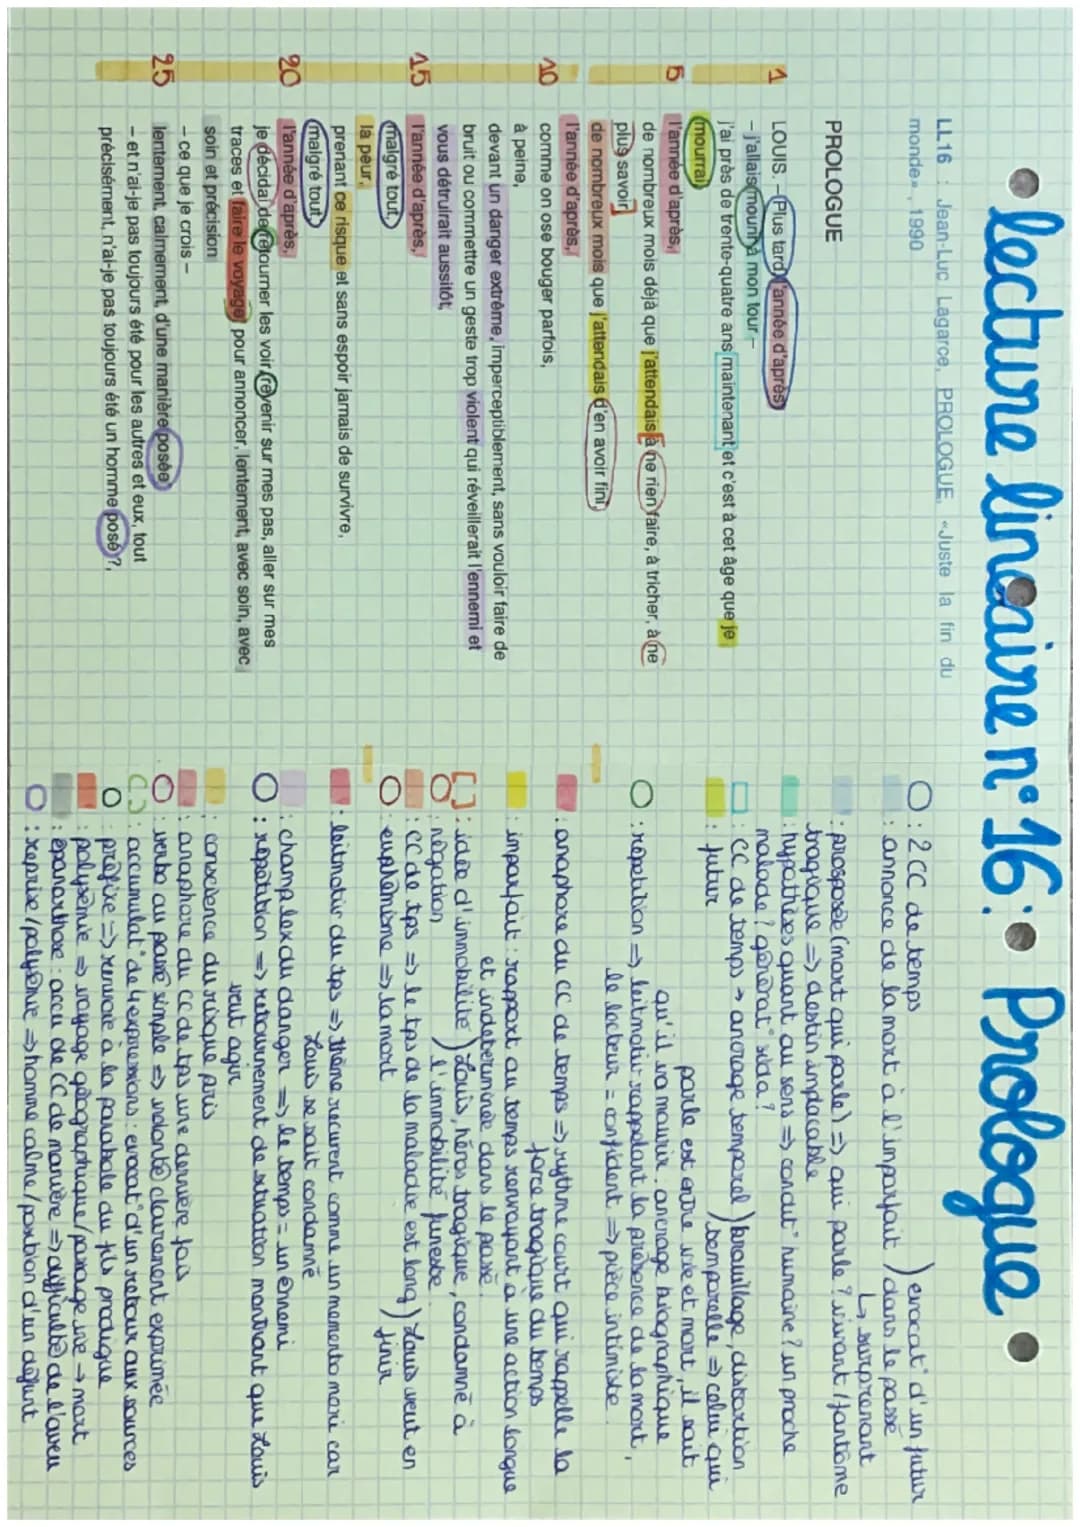 lecture linéaire n° 16 : Prologue
LL16 : Jean-Luc Lagarce, PROLOGUE, «Juste la fin du
monde», 1990
PROLOGUE
1
LOUIS. – Plus tard, l'année d'après
– j'allais mourir à mon tour –
j'ai près de trente-quatre ans maintenant et c'est à cet âge que je
mourrai,
5
l'année d'après,
de nombreux mois déjà que j'attendais à ne rien faire, à tricher, à ne
plus savoir,
de nombreux mois que j'attendais d'en avoir fini,
l'année d'après,
10
comme on ose bouger parfois,
à peine,
devant un danger extrême, imperceptiblement, sans vouloir faire de
bruit ou commettre un geste trop violent qui réveillerait l'ennemi et
vous détruirait aussitôt,
15
l'année d'après,
malgré tout,
la peur,
prenant ce risque et sans espoir jamais de survivre,
malgré tout,
20
l'année d'après,
je décidai de retourner les voir, revenir sur mes pas, aller sur mes
traces et faire le voyage, pour annoncer, lentement, avec soin, avec
soin et précision
– ce que je crois –
25
lentement, calmement, d'une manière posée
– et n'ai-je pas toujours été pour les autres et eux, tout
précisément, n'ai-je pas toujours été un homme posé ?,
: 2 CC de temps ) evocat° d'un futur
: annonce de la mort à l'imparfait ) dans le passé
↳ surprenant
: prosopée (mort qui parle) => qui parle ? vivant / fantôme
tragique => destin implacable
: hypothèses quant au sens => condit° humaine ? un proche
malade ? générat° sida ?
: CC de temps → ancrage temporel ) brouillage, distortion
: futur ) temporelle => celui qui
parle est entre vie et mort, il sait
qu'il va mourir. ancrage biographique
: répétition => leitmotiv rappelant la présence de la mort,
le lecteur = confident => pièce intimiste.
: anaphore du CC de temps => rythme court qui rappelle la
force tragique du temps
: imparfait : rapport au temps renvoyant à une action longue
et indéterminée dans le passé.
: idée d'immobilité ) Louis, héros tragique, condamné à
: négation ) l'immobilité funeste.
: CC de tps => le tps de la maladie est long ) Louis veut en
: euphémisme => la mort ) finir
: leitmotiv du tps => thème récurent comme un memento mori car
Louis se sait condamné
: champ lex du danger => le temps = un ennemi
: répétition => retournement de situation montrant que Louis
veut agir
: conscience du risque pris
: anaphore du CC de tps une dernière fois
: verbe au passé simple => volonté clairement exprimée
: accumulat° de 4 expressions : evocat° d'un retour aux sources
: préfixe => renvoie à la parabole du fils prodigue
: polysémie => voyage géographique / passage vie → mort
: épanorthose : accu de CC de manière => difficulté de l'aveu
: reprise / polysémie => homme calme / position d'un défunt